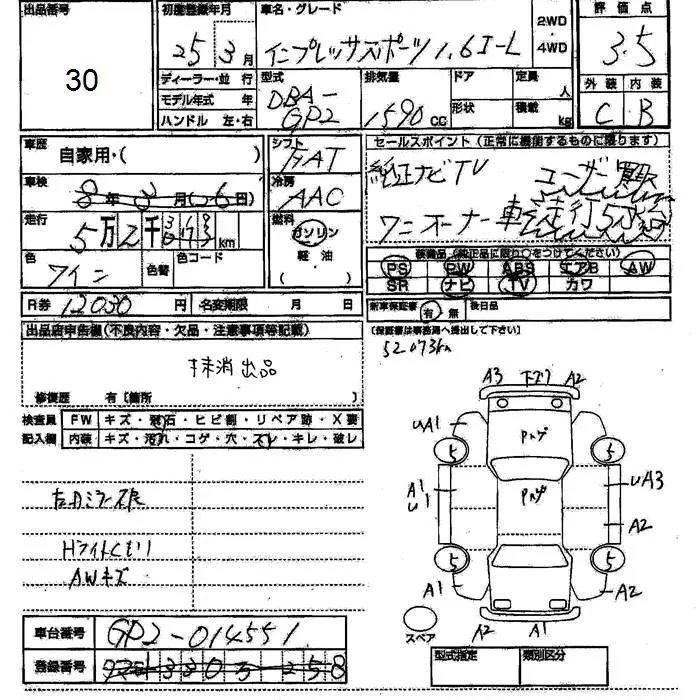 出品番号
30
初度登録年月
25年3月
車名・グレード
インプレッサスポーツ 1.6I-L
2WD
・
4WD
評価点
3.5
外装 内装
C B
ディーラー・並行
モデル年式 年
ハンドル 左・右
型式
DBA-
GP2
排気量
1590cc
ドア
形状
定員
人
積載
kg
車歴
自家用・( )
車検
8年3月(26日)
走行
5万2千 km
色
ワイン
色替
色コード
シフト
FAT
冷房
AAC
燃料
ガソリン
軽油
( )
セールスポイント(正常に機能するものに限ります)
純正ナビTV
ユーザー買取
ワンオーナー車
走行5万台
装備品(純正品に限り○をつけてください)
PS PW ABS エアB AW
SR ナビ TV カワ
R券 12030円 名変期限 月 日
新車保証書 有 無 後日品
(保証書は事務局へ提出して下さい)
52073km
出品店申告欄(不良内容・欠品・注意事項等記載)
抹消出品
修復歴 有〔箇所 〕
検査員 FW キズ・飛石・ヒビ割・リペア跡・X要
記入欄 内装 キズ・汚れ・コゲ・穴・スレ・キレ・破レ
Hライトくもり
AWキズ
A3 下ズリ A2
UA1
Pハゲ
5 5
A1
U1
Pハゲ
UA3
A2
5 5
A1 A2
スペア
A2 A1
車台番号 GP2-014551
登録番号
型式指定 類別区分